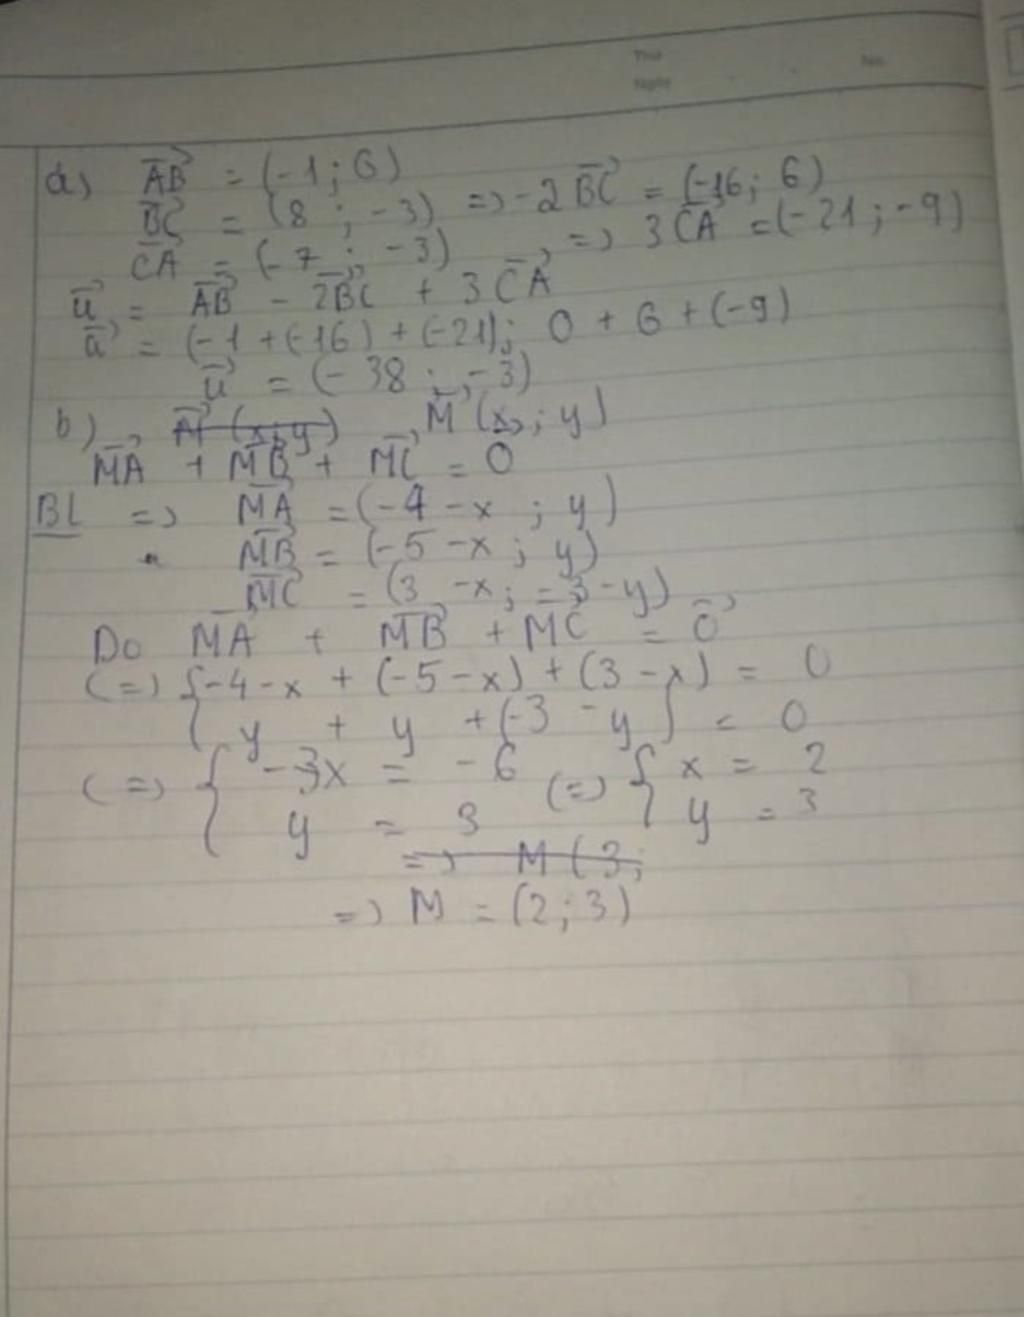 Thứ
No.
Ngày
a) AB⃗ = (-1; 6)
BC⃗ = (8; -3) => -2BC⃗ = (-16; 6)
CA⃗ = (-7; -3) => 3CA⃗ = (-21; -9)
u⃗ = AB⃗ - 2BC⃗ + 3CA⃗
u⃗ = (-1 + (-16) + (-21); 0 + 6 + (-9)
u⃗ = (-38; -3)
b) M⃗ (x; y) M⃗ (x; y)
MA⃗ + MB⃗ + MC⃗ = 0
BL => MA⃗ = (-4 - x; y)
MB⃗ = (-5 - x; y)
MC⃗ = (3 - x; -3 - y)
Do MA⃗ + MB⃗ + MC⃗ = 0⃗
(=) { -4 - x + (-5 - x) + (3 - x) = 0
y + y + (-3 - y) = 0
(=) { -3x = -6 (=) { x = 2
y = 3 y = 3
=> M (3;
=> M = (2; 3)